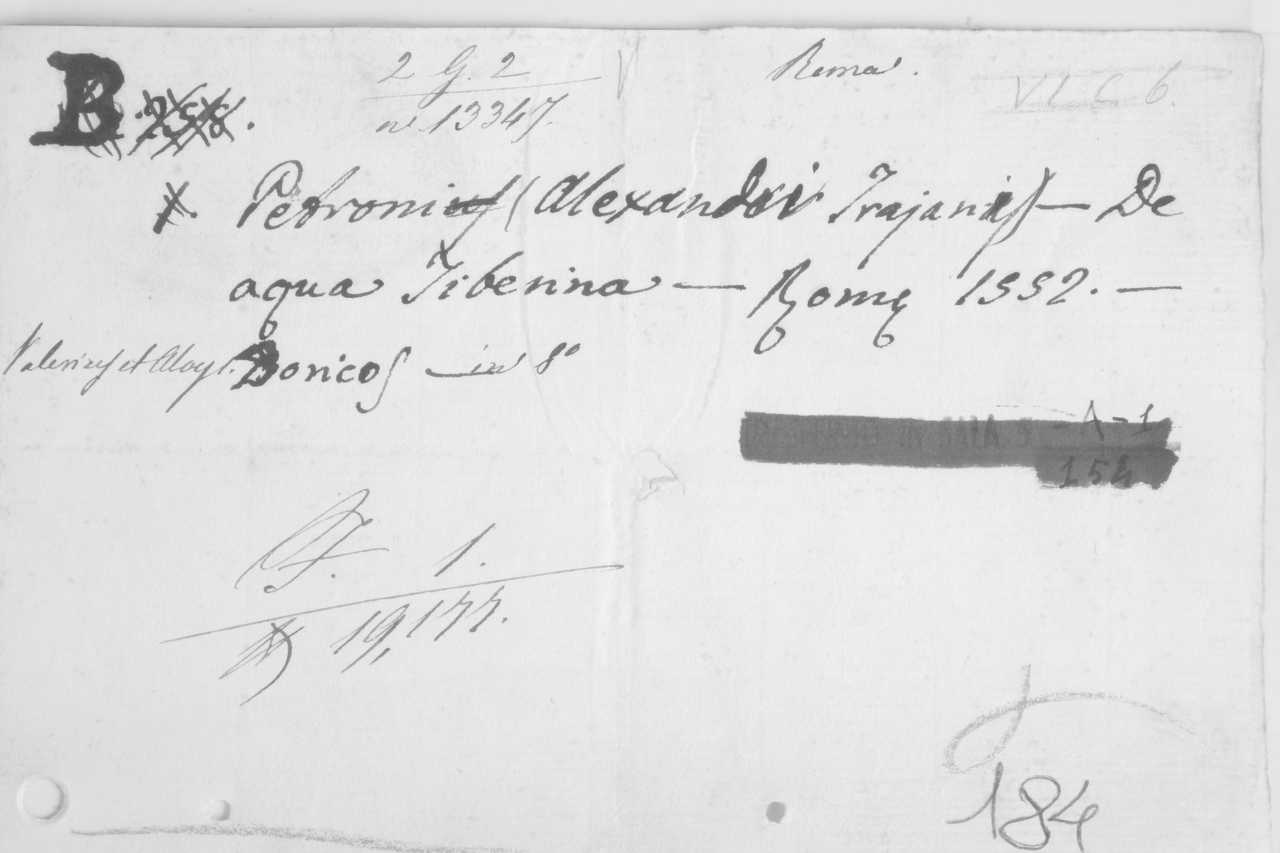 B 258.
2 G. 2
n.° 13347.
Roma.
VI C 6.
Petronius (Alexandri Trajani) — De
aqua Tiberina — Romę 1552. —
Valerius et Aloys. Doricos — in 8°
RISERVATI IN SALA 9 - A - 1
154
F. 1.
19,177.
184